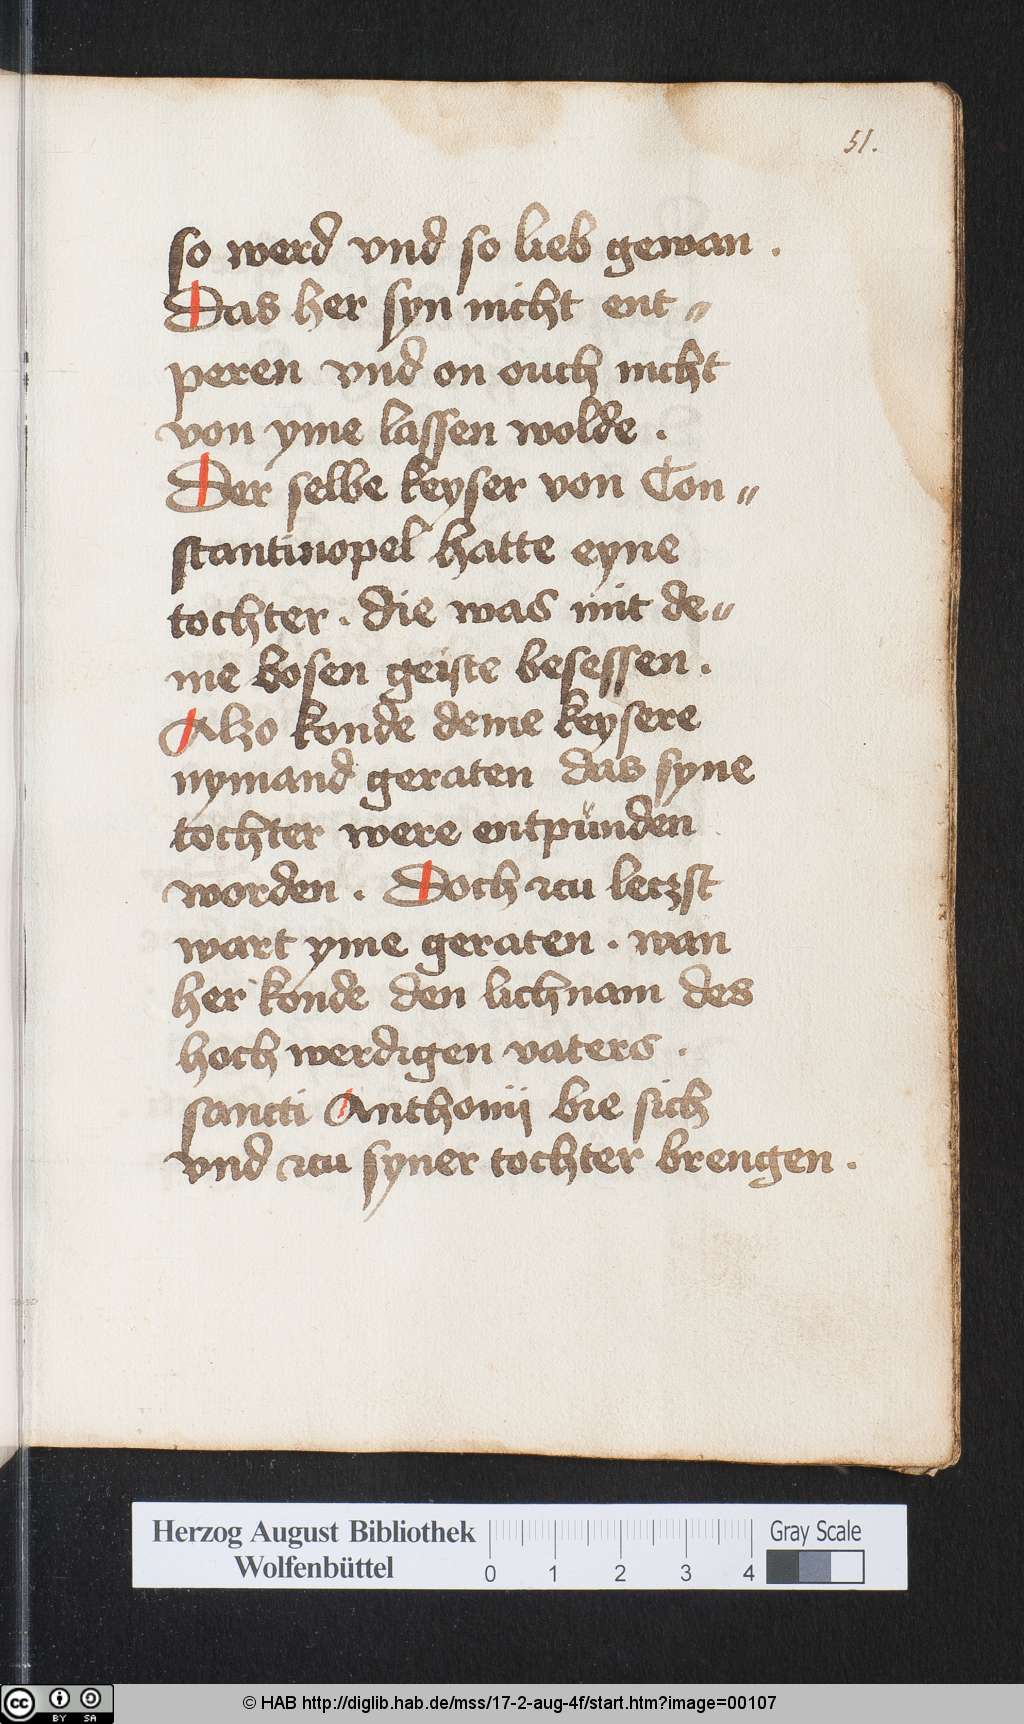 51.
so werd vnd so lieb gewan .
Das her syn nicht ent〃
peren vnd on ouch nicht
von yme lassen wolde .
Der selbe keyser von Con〃
stantinopel hatte eyne
tochter . die was mit de〃
me bosen geiste besessen .
Alzo konde deme keysere
nymand geraten das syne
tochter were entpünden
worden . Doch zcu leczst
wart yme geraten . wan
her konde den lichnam des
hoch werdigen vaters .
sancti Anthonij bie sich
vnd zcu syner tochter brengen .
Herzog August Bibliothek
Wolfenbüttel
0 1 2 3 4
Gray Scale
cc BY SA
© HAB http://diglib.hab.de/mss/17-2-aug-4f/start.htm?image=00107